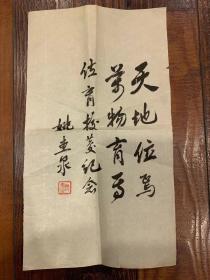 天地位焉
万物育焉
位育校庆纪念
姚惠泉